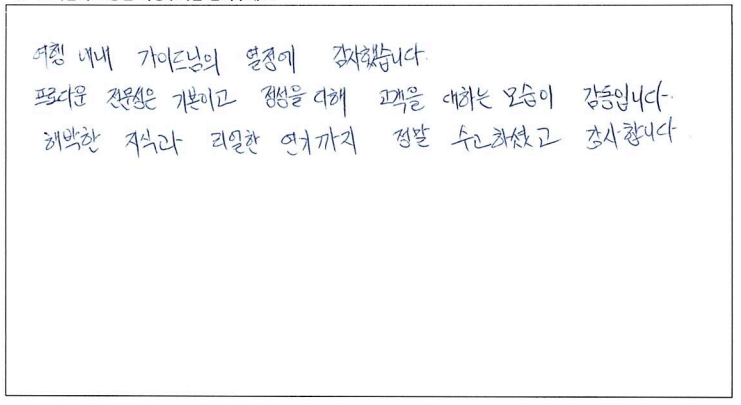 여행 내내 가이드님의 열정에 감사했습니다.
프로다운 전문성은 기본이고 정성을 다해 고객을 대하는 모습이 감동입니다.
해박한 지식과 리얼한 연기까지 정말 수고하셨고 감사합니다